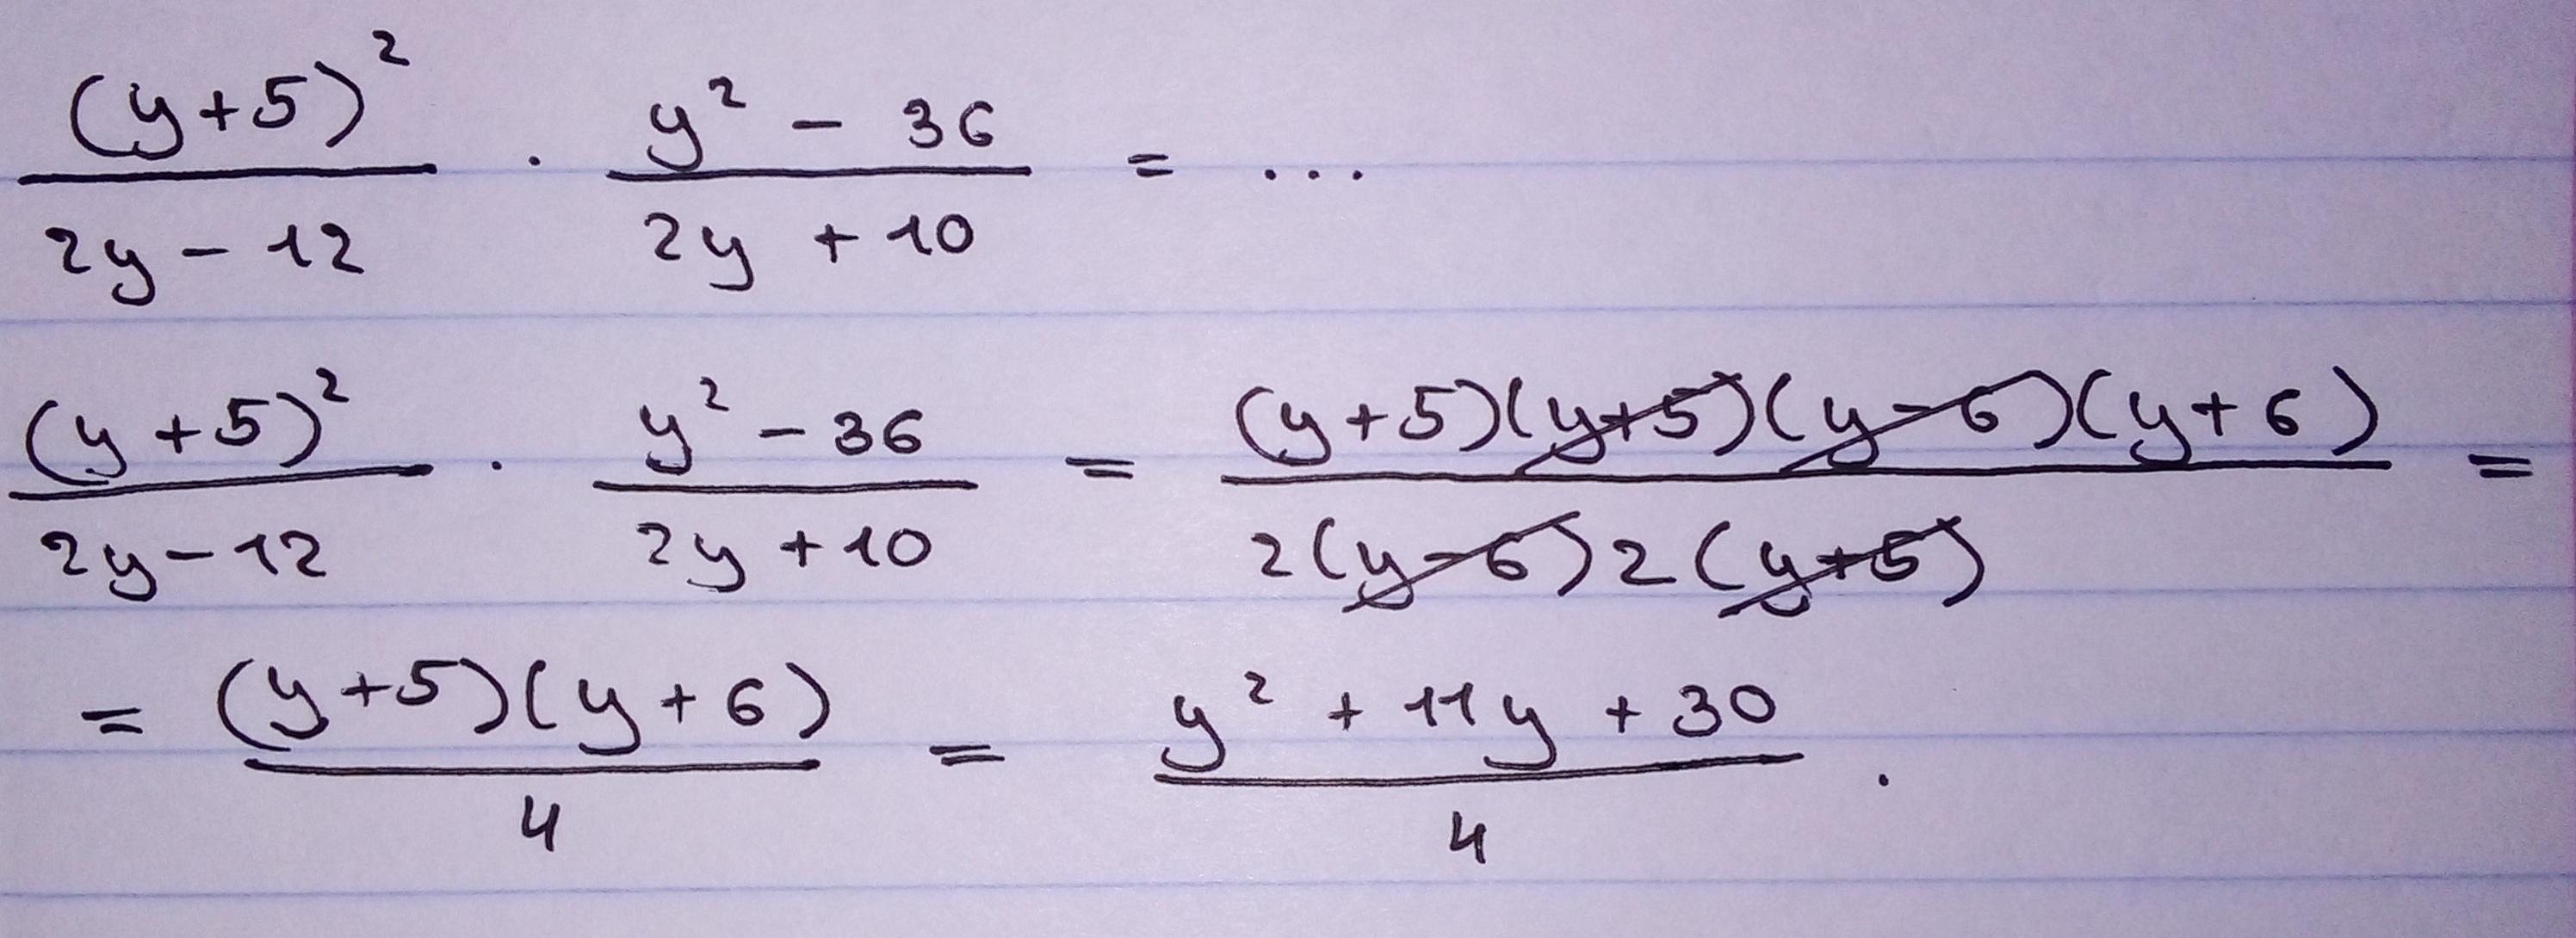 (y+5)² / (2y-12) · (y² - 36) / (2y + 10) = ...
(y+5)² / (2y-12) · (y² - 36) / (2y+10) = (y+5)(y+5)(y-6)(y+6) / 2(y-6)2(y+5) =
= (y+5)(y+6) / 4 = (y² + 11y + 30) / 4 .